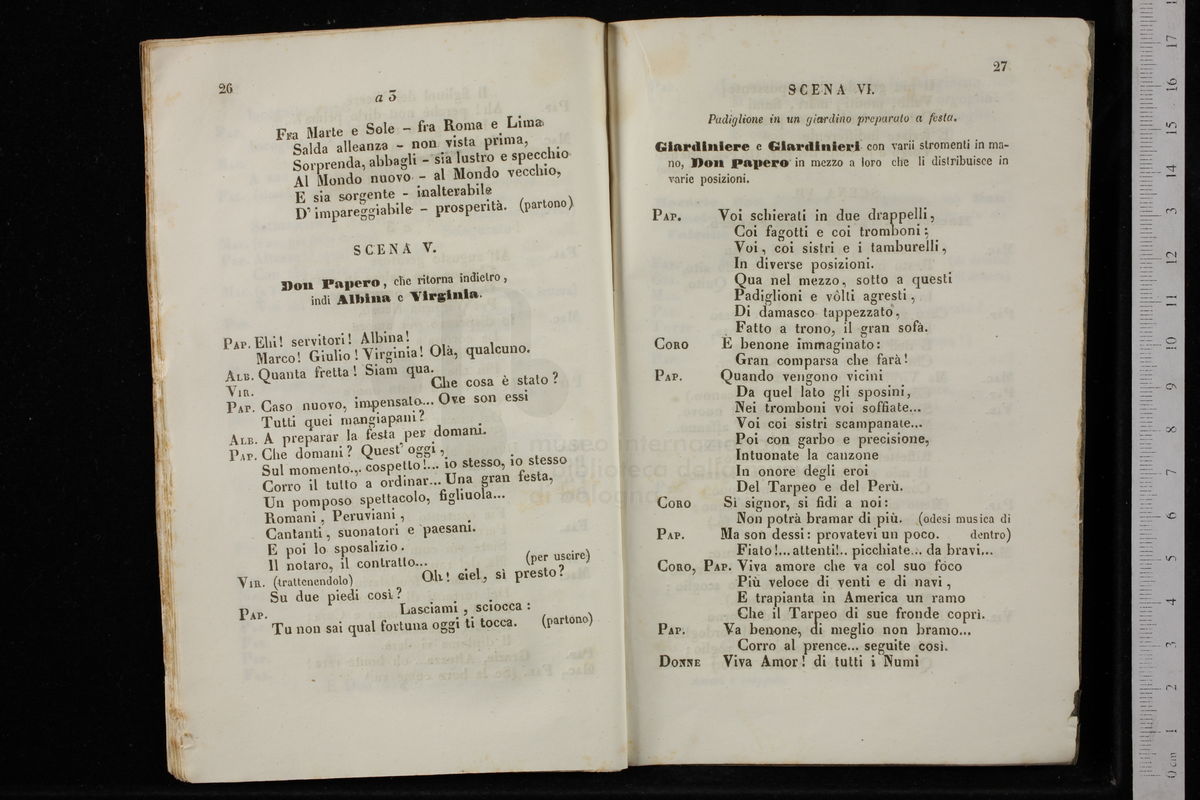 26
a 3
Fra Marte e Sole - fra Roma e Lima
Salda alleanza - non vista prima,
Sorprenda, abbagli - sia lustro e specchio
Al Mondo nuovo - al Mondo vecchio,
E sia sorgente - inalterabile
D' impareggiabile - prosperità. (partono)
SCENA V.
Don Papero, che ritorna indietro,
indi Albina e Virginia.
PAP. Ehi! servitori! Albina!
Marco! Giulio! Virginia! Olà, qualcuno.
ALB. Quanta fretta! Siam qua.
VIR. Che cosa è stato?
PAP. Caso nuovo, impensato... Ove son essi
Tutti quei mangiapani?
ALB. A preparar la festa per domani.
PAP. Che domani? Quest' oggi,
Sul momento... cospetto!... io stesso, io stesso
Corro il tutto a ordinar... Una gran festa,
Un pomposo spettacolo, figliuola...
Romani, Peruviani,
Cantanti, suonatori e paesani.
E poi lo sposalizio.
Il notaro, il contratto... (per uscire)
VIR. (trattenendolo) Oh! ciel, sì presto?
Su due piedi così?
PAP. Lasciami, sciocca:
Tu non sai qual fortuna oggi ti tocca. (partono)
27
SCENA VI.
Padiglione in un giardino preparato a festa.
Giardiniere e Giardinieri con varii stromenti in ma-
no, Don Papero in mezzo a loro che li distribuisce in
varie posizioni.
PAP. Voi schierati in due drappelli,
Coi fagotti e coi tromboni;
Voi, coi sistri e i tamburelli,
In diverse posizioni.
Qua nel mezzo, sotto a questi
Padiglioni e vòlti agresti,
Di damasco tappezzato,
Fatto a trono, il gran sofà.
CORO È benone immaginato:
Gran comparsa che farà!
PAP. Quando vengono vicini
Da quel lato gli sposini,
Nei tromboni voi soffiate...
Voi coi sistri scampanate...
Poi con garbo e precisione,
Intuonate la canzone
In onore degli eroi
Del Tarpeo e del Perù.
CORO Sì signor, si fidi a noi:
Non potrà bramar di più. (odesi musica di
PAP. Ma son dessi: provatevi un poco. dentro)
Fiato!... attenti!.. picchiate... da bravi...
CORO, PAP. Viva amore che va col suo foco
Più veloce di venti e di navi,
E trapianta in America un ramo
Che il Tarpeo di sue fronde coprì.
PAP. Va benone, di meglio non bramo...
Corro al prence... seguite così.
DONNE Viva Amor! di tutti i Numi